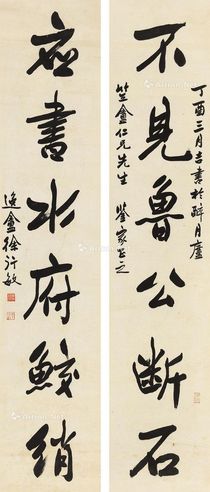 丁酉三月吉書於醉月廬
不見魯公斷石
竺盦仁兄先生 鑒家正之
應書水府鮫綃
逸盦徐行敏